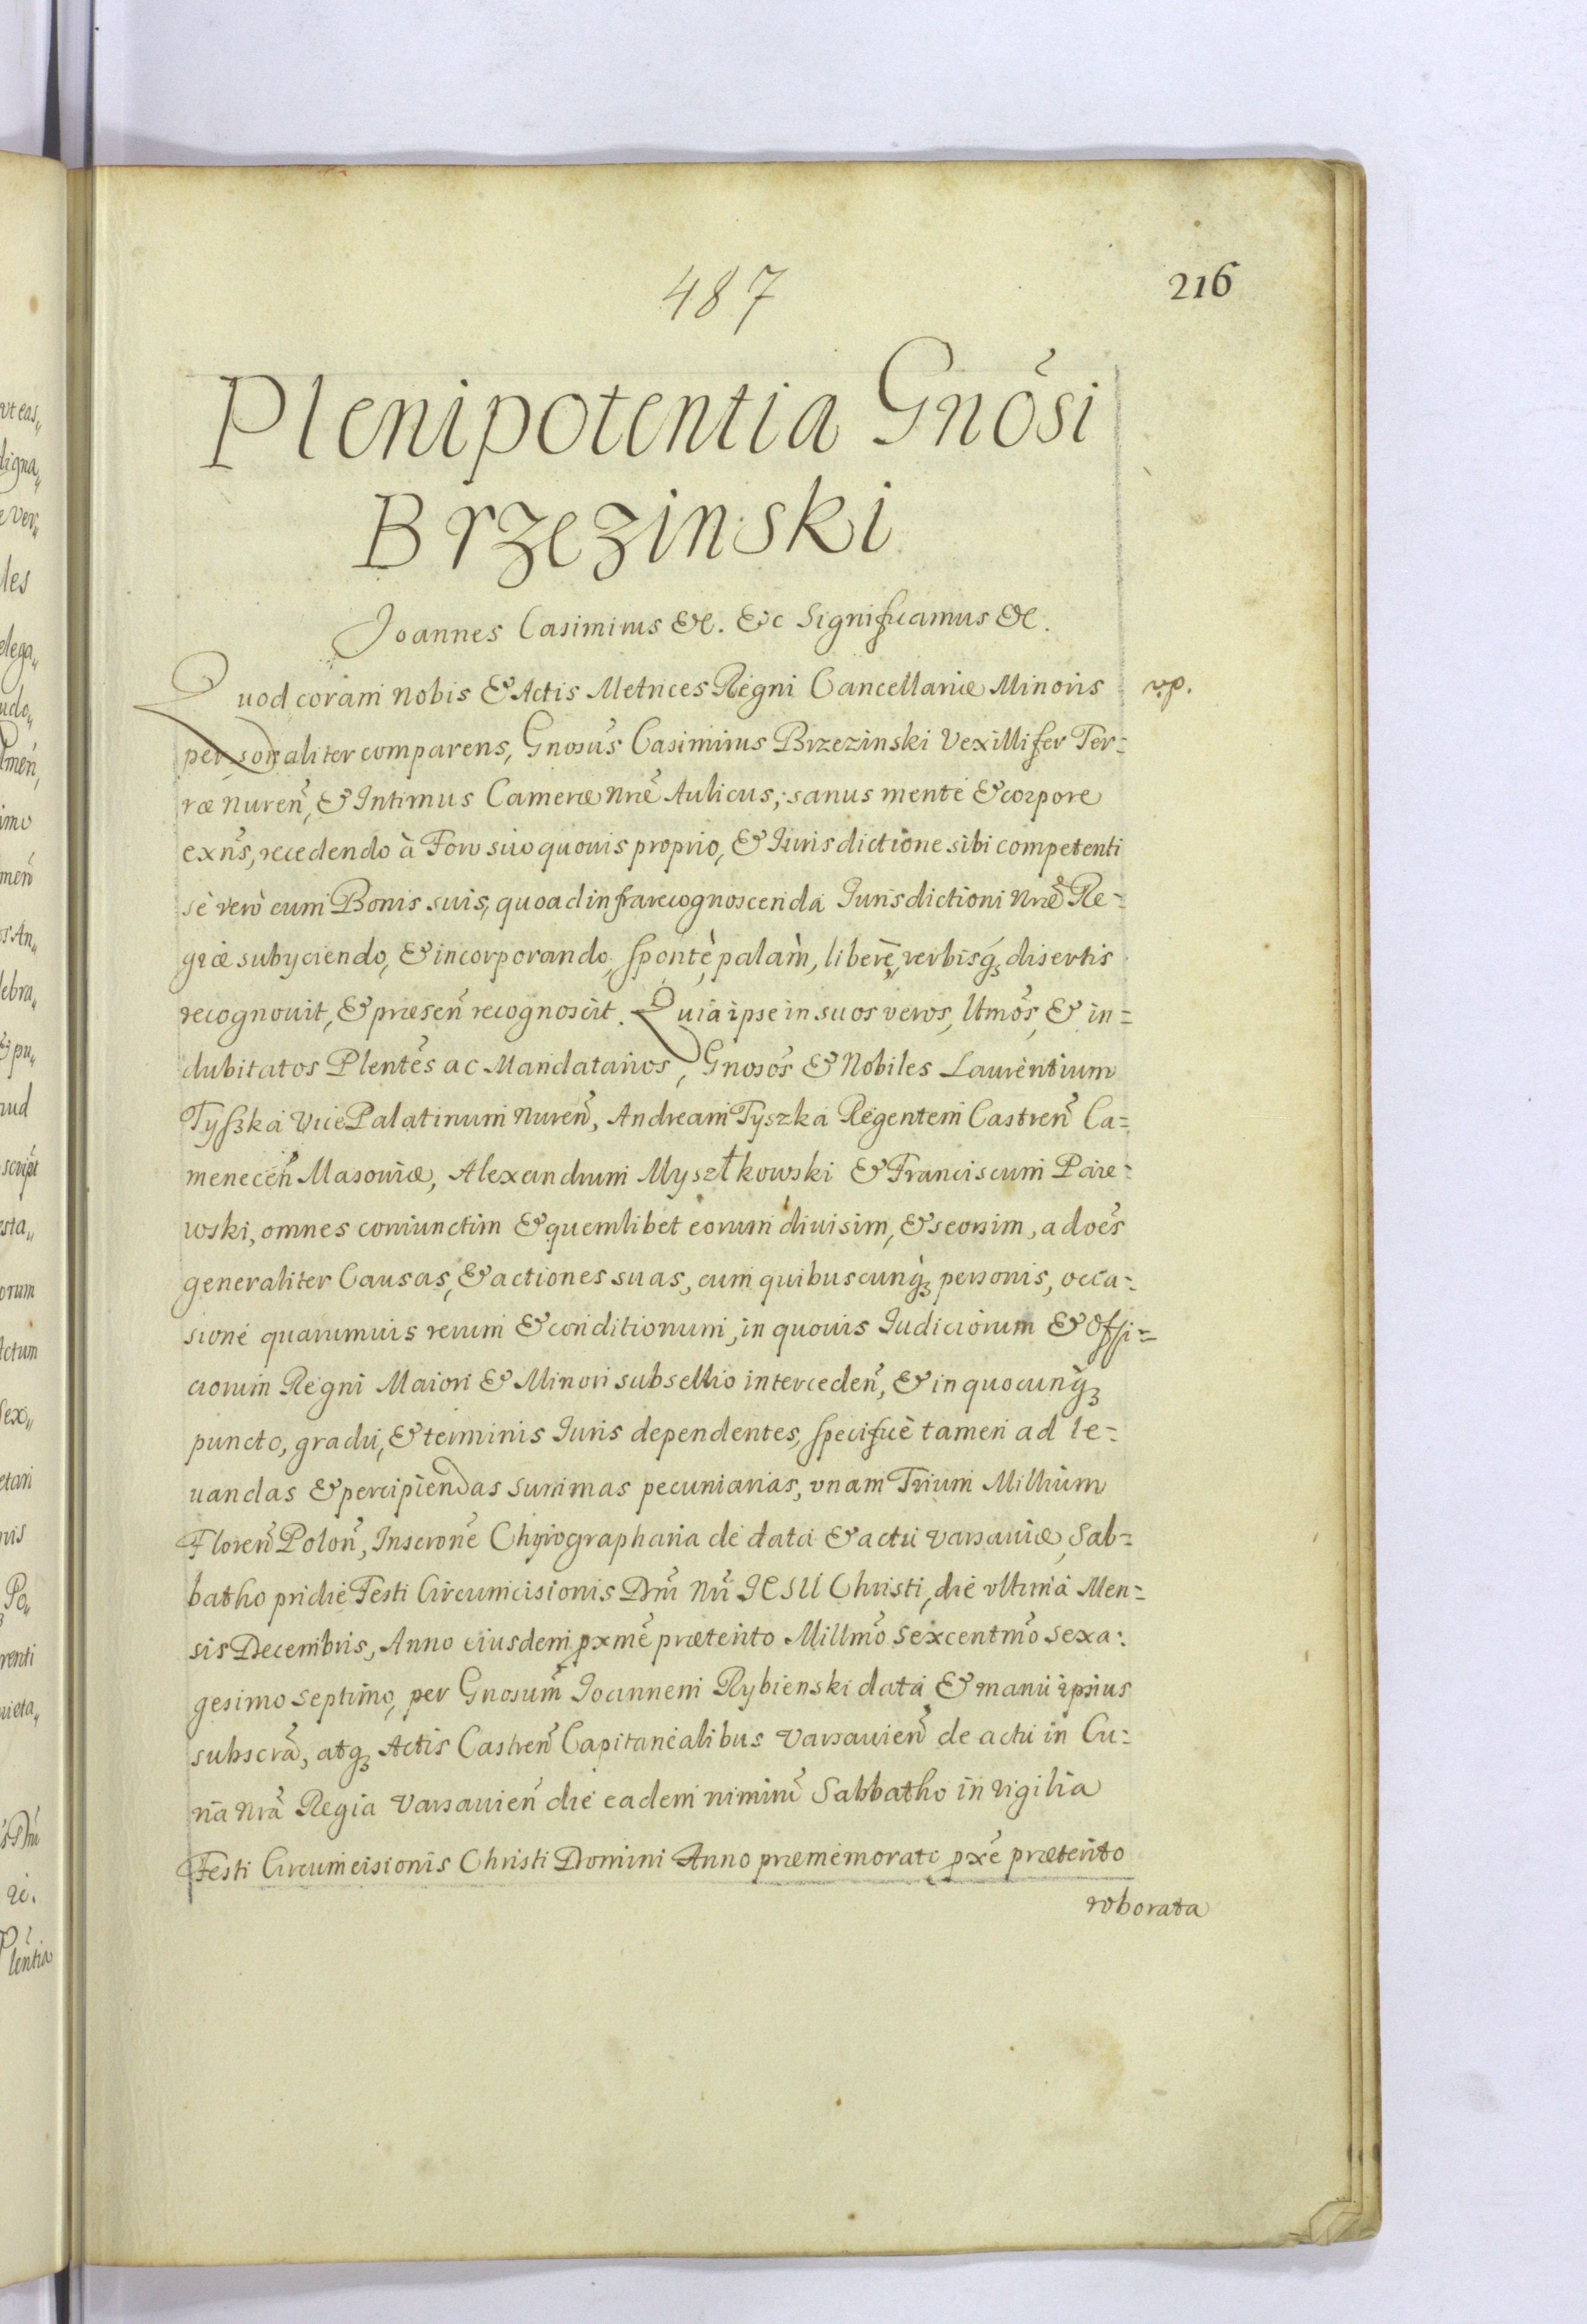 487
216
Plenipotentia Gnõsi
Brzezinski
Joannes Casimirus &c. &c Significamus &c.
Quod coram nobis & Actis Metrices Regni Cancellariæ Minoris
vp.
personaliter comparens, Gnosus Casimirus Brzezinski Vexillifer Ter=
ræ nureñ, & Intimus Cameræ nrẽ Aulicus, sanus mente & corpore
exñs, recedendo à Foro suo quovis proprio, & Jurisdictione sibi competenti
sè verò cum Bonis suis, quoad infrarecognoscenda Jurisdictioni nrẽ Re=
giæ subyciendo, & incorporando, spontè, palàm, liberè, verbisq̃ disertis
recognovit, & præseñ recognoscit. Quia ipse in suos veros, ltmõs, & in=
dubitatos Plentẽs ac Mandatarios, Gnosõs & Nobiles Laurentium
Tyszka Vice Palatinum nureñ, Andream Tyszka Regentem Castreñ Ca=
meneceñ Masoviæ, Alexandrum Myszłkowski & Franciscum Paie=
wski, omnes coniunctim & quemlibet eorum diuisim, & seorsim, ad oẽs
generaliter Causas, & actiones suas, cum quibuscunq̃ personis, occa=
sione quarumuis rerum & conditionum, in quouis Judiciorum & Offi=
ciorum Regni Maiori & Minori subsellio intercedeñ, & in quocunq̃
puncto, gradu, & terminis Juris dependentes, specificè tamen ad le=
uandas & percipiendas summas pecuniarias, vnam Trium Millium
Floreñ Poloñ, Inscronẽ Chyrographaria de data & actu Varsauiæ, Sab=
batho pridie Festi Circumcisionis Dnĩ Nrĩ JESU Christi, die vltima Men=
sis Decembris, Anno eiusdem pxmẽ præterito Millmõ sexcentmõ sexa=
gesimo septimo, per Gnosum̃ Joannem Rybienski data & manu ipsius
subscrã, atq̃ Actis Castreñ Capitanealibus Varsauieñ de actu in Cu=
ria nrã Regia Varsauieñ die eadem nimirũ Sabbatho in vigilia
Festi Circumcisionis Christi Domini Anno præmemorato pxẽ præterito
roborata